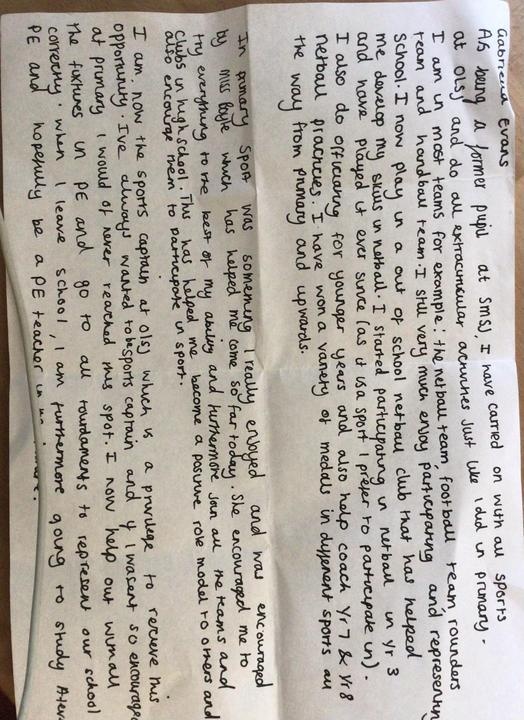 Gabriella Evans
As being a former pupil at SMSJ, I have carried on with all sports
at OLSJ and do all extracuricular activities just like I did in primary.
I am in most teams for example: the netball team, football team, rounders
team and handball team. I still very much enjoy participating and representing
school. I now play in a out of school netball club that has helped
me develop my skills in netball. I started participating in netball in yr 3
and have played it ever since (as it is a sport I prefer to participate in).
I also do officiating for younger years and also help coach Yr7 & Yr8
netball practicies. I have won a variety of medals in different sports all
the way from primary and upwards.
In primary sport was something I really enjoyed and was encouraged
by miss Boyle which has helped me come so far today. She encouraged me to
try everything to the best of my ability and furthermore join all the teams and
clubs in high school. This has helped me become a positive role model to others and
also encourage them to participate in sport.
I am now the sports captain at olsj which is a privilege to recieve this
opportunity. I've always wanted to be sports captain and if I wasent so encourage
at primary I would of never reached this spot. I now help out with all
the fixtures in PE and go to all tourdaments to represent our school
correctly. when I leave school, I am furthermore going to study Aleve
PE and hopefully be a PE teacher in